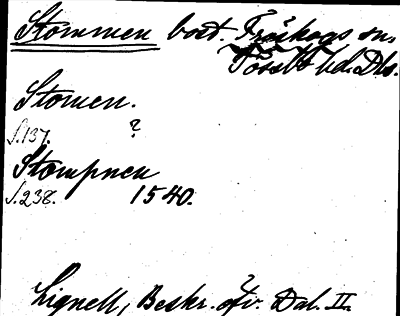 Stommen bost. Fröskogs sn,
Tössbo hd. Dls.
Stomen.
s. 137. ?
Stompnen
s. 238. 1540.
Lignell, Beskr. öfv. Dal. II.